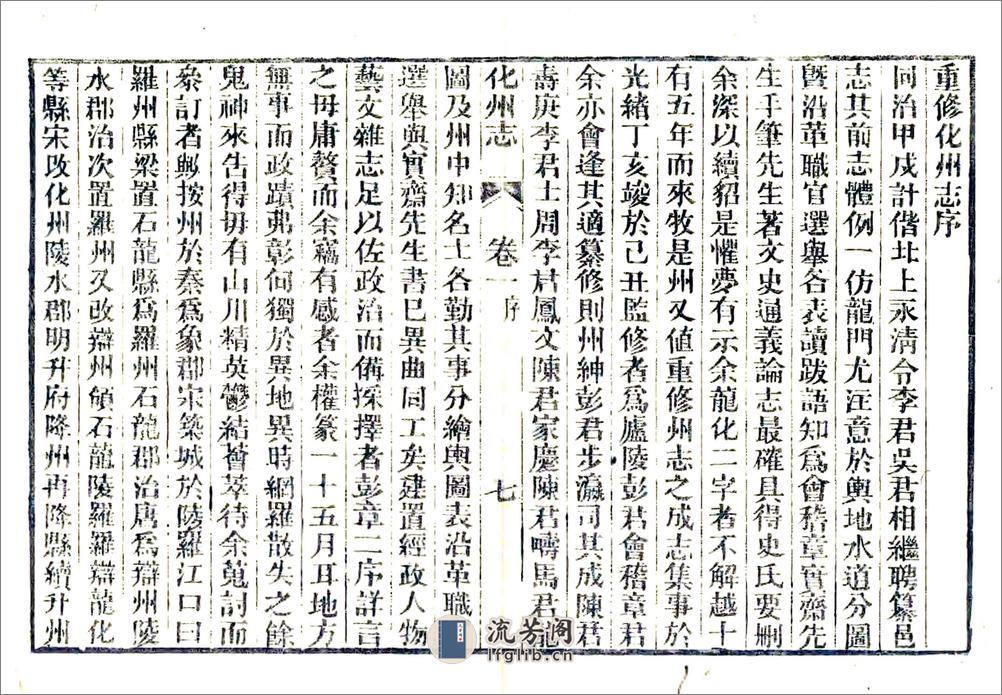 重修化州志序
同治甲戌計偕北上永淸令李君吳君相繼聘纂邑
志其前志體例一仿龍門尤注意於輿地水道分圖
曁沿革職官選舉各表讀跋語知爲會稽章實齋先
生手筆先生著文史通義論志最確具得史氏要删
余深以續貂是懼夢有示余龍化二字者不解越十
有五年而來牧是州又値重修州志之成志集事於
光緒丁亥竣於己丑監修者爲廬陵彭君會稽章君
余亦會逢其適纂修則州紳彭君步瀛司其成陳君
壽庚李君士周李君鳳文陳君家慶陳君疇馬君龍
化州志 卷一 序 七
圖及州中知名士各勤其事分繪輿圖表沿革職
選舉與實齋先生書已異曲同工矣建置經政人物
藝文雜志足以佐政治而備採擇者彭章二序詳言
之毋庸贅而余竊有感者余權篆一十五月耳地方
無事而政蹟弗彰何獨於異地異時網羅散失之餘
鬼神來吿得毋有山川精英鬱結薈萃待余蒐討而
叅訂者歟按州於秦爲象郡宋築城於陵羅江口曰
羅州縣梁置石龍縣爲羅州石龍郡治唐爲辯州陵
水郡治次置羅州又改辯州領石龍陵羅羅辯龍化
等縣宋改化州陵水郡明升府降州再降縣續升州
流芳閣
lfglib.cn